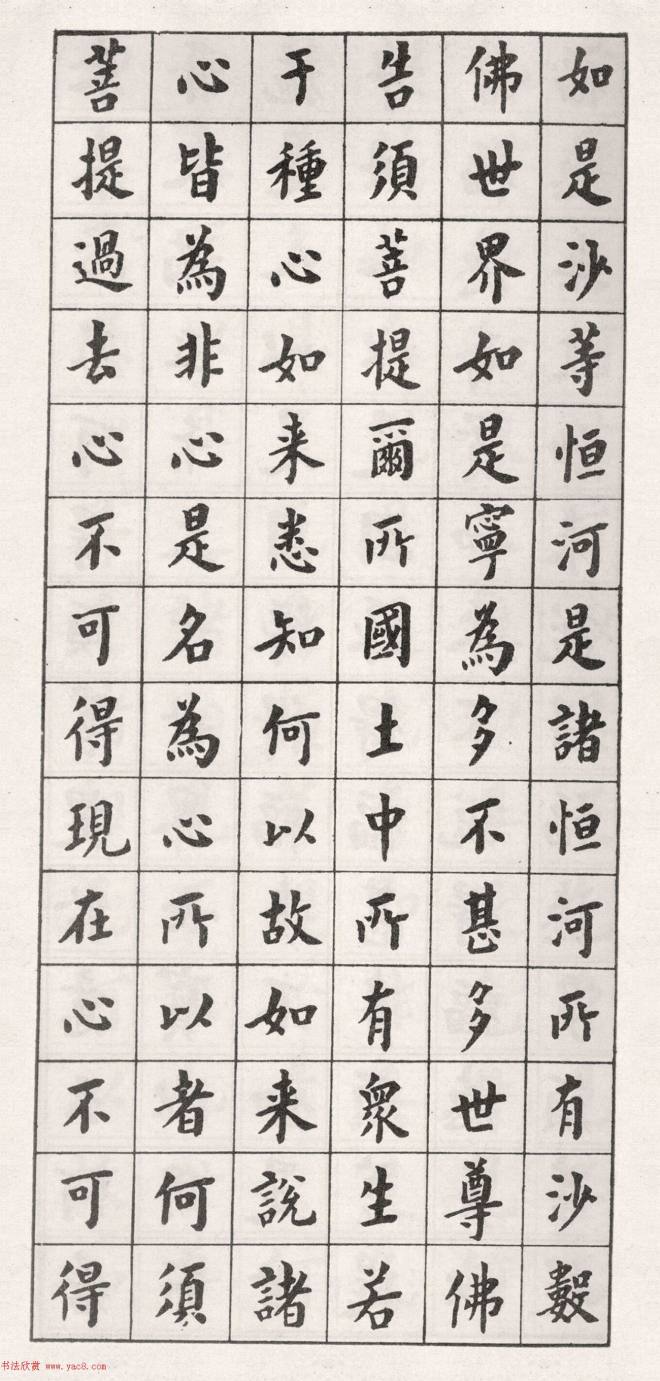 如是沙等恒河是諸恒河所有沙數
佛世界如是寧為多不甚多世尊佛
告須菩提爾所國土中所有衆生若
干種心如来悉知何以故如来説諸
心皆為非心是名為心所以者何須
菩提過去心不可得現在心不可得
书法欣赏 www.yac8.com